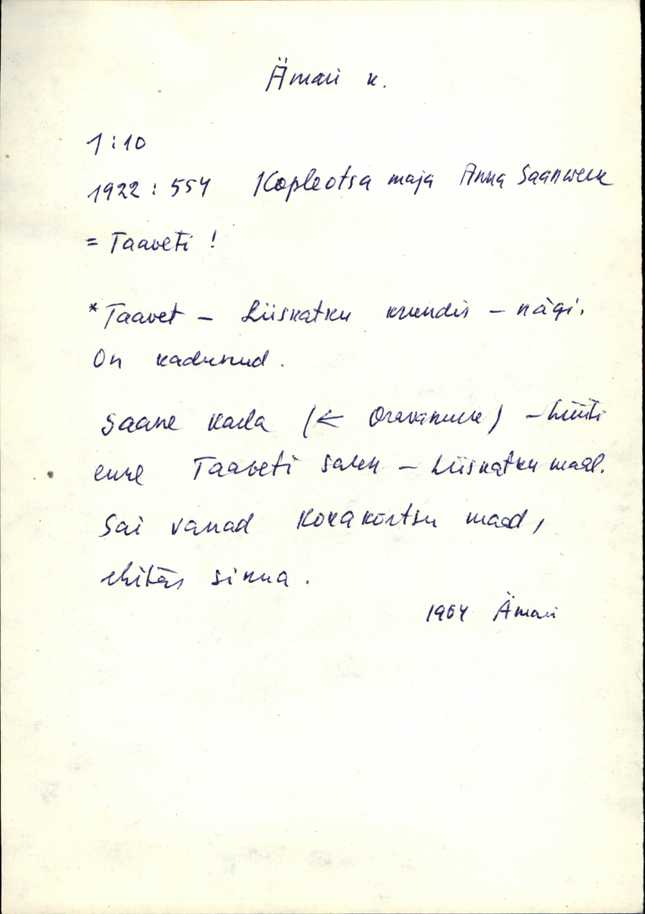 Ämari k.
1:10
1922: 554 Kopleotsa maja Anna Saanweek
= Taaveti!
*Taavet – Liiskatku krundis – nägi.
On kadunud.
Saane Kaela (← Oravanukk) – hüüti
enne Taaveti saun – Liiskatku maal.
Sai vanad Korakõrtsu maad,
ehitas sinna.
1964 Ämari